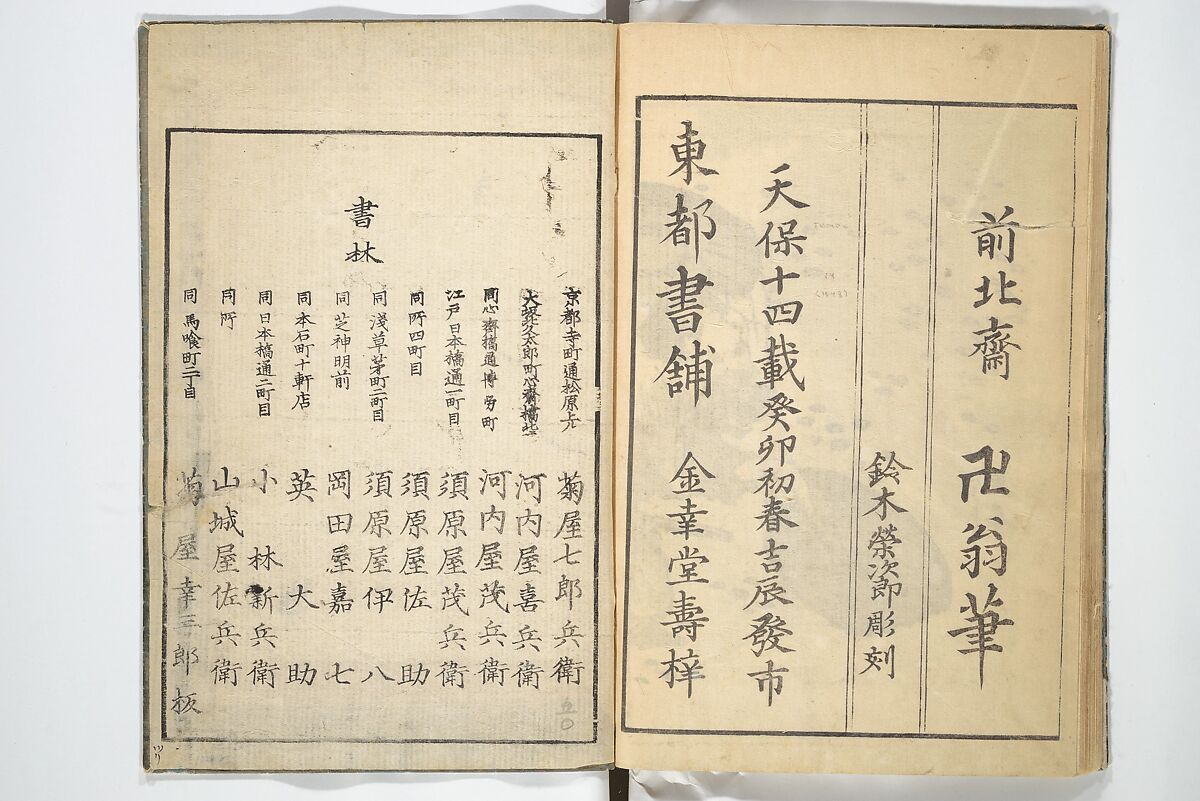 前北齋 卍翁筆
鈴木榮次郎彫刻
天保十四載癸卯初春吉辰發市
東都書舗 金幸堂壽梓
書林
京都寺町通松原上ル 菊屋七郎兵衛
大坂久太郎町心齋橋 河内屋喜兵衛
同心齋橋通博労町 河内屋茂兵衛
江戸日本橋通一町目 須原屋茂兵衛
同所四町目 須原屋佐助
同淺草茅町二町目 須原屋伊八
同芝神明前 岡田屋嘉七
同本石町十軒店 英大助
同日本橋通二町目 小林新兵衛
同所 山城屋佐兵衛
同馬喰町二丁目 菊屋幸三郎板
五〇